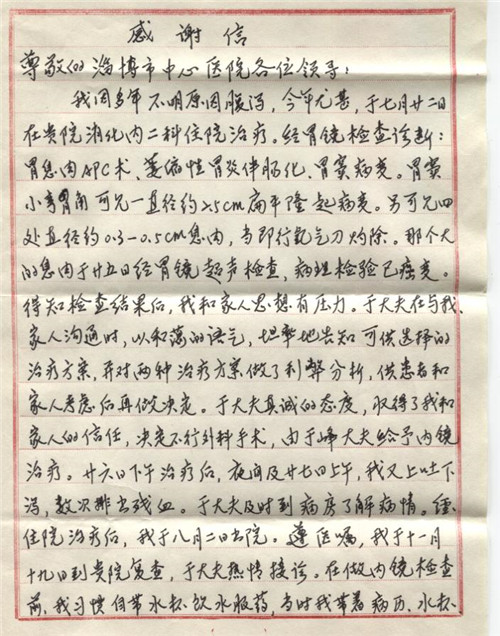 感谢信
尊敬的淄博市中心医院各位领导：
我因多年不明原因腹泻，今年尤甚，于七月廿二日
在贵院消化内二科住院治疗。经胃镜检查诊断：
胃息肉APC术、萎缩性胃炎伴肠化、胃窦病变。胃窦
小弯胃角可见一直径约2.5cm扁平隆起病变。另可见四
处直径约0.3-0.5cm息肉，当即行氩气刀灼除。那个大
的息肉于廿五日经胃镜超声检查，病理检验已癌变。
得知检查结果后，我和家人思想有压力。于大夫在与我、
家人沟通时，以和蔼的语气，坦率地告知可供选择的
治疗方案，并对两种治疗方案做了利弊分析，供患者和
家人考虑后再做决定。于大夫真诚的态度，取得了我和
家人的信任，决定不行外科手术，由于峰大夫给予内镜
治疗。廿六日下午治疗后，夜间及廿七日上午，我又上吐下
泻，数次排出残血。于大夫及时到病房了解病情。经
住院治疗后，我于八月二日出院。遵医嘱，我于十一月
十九日到贵院复查，于大夫热情接诊。在做内镜检查
前，我习惯自带水杯饮水服药，当时我带着病历、水杯、